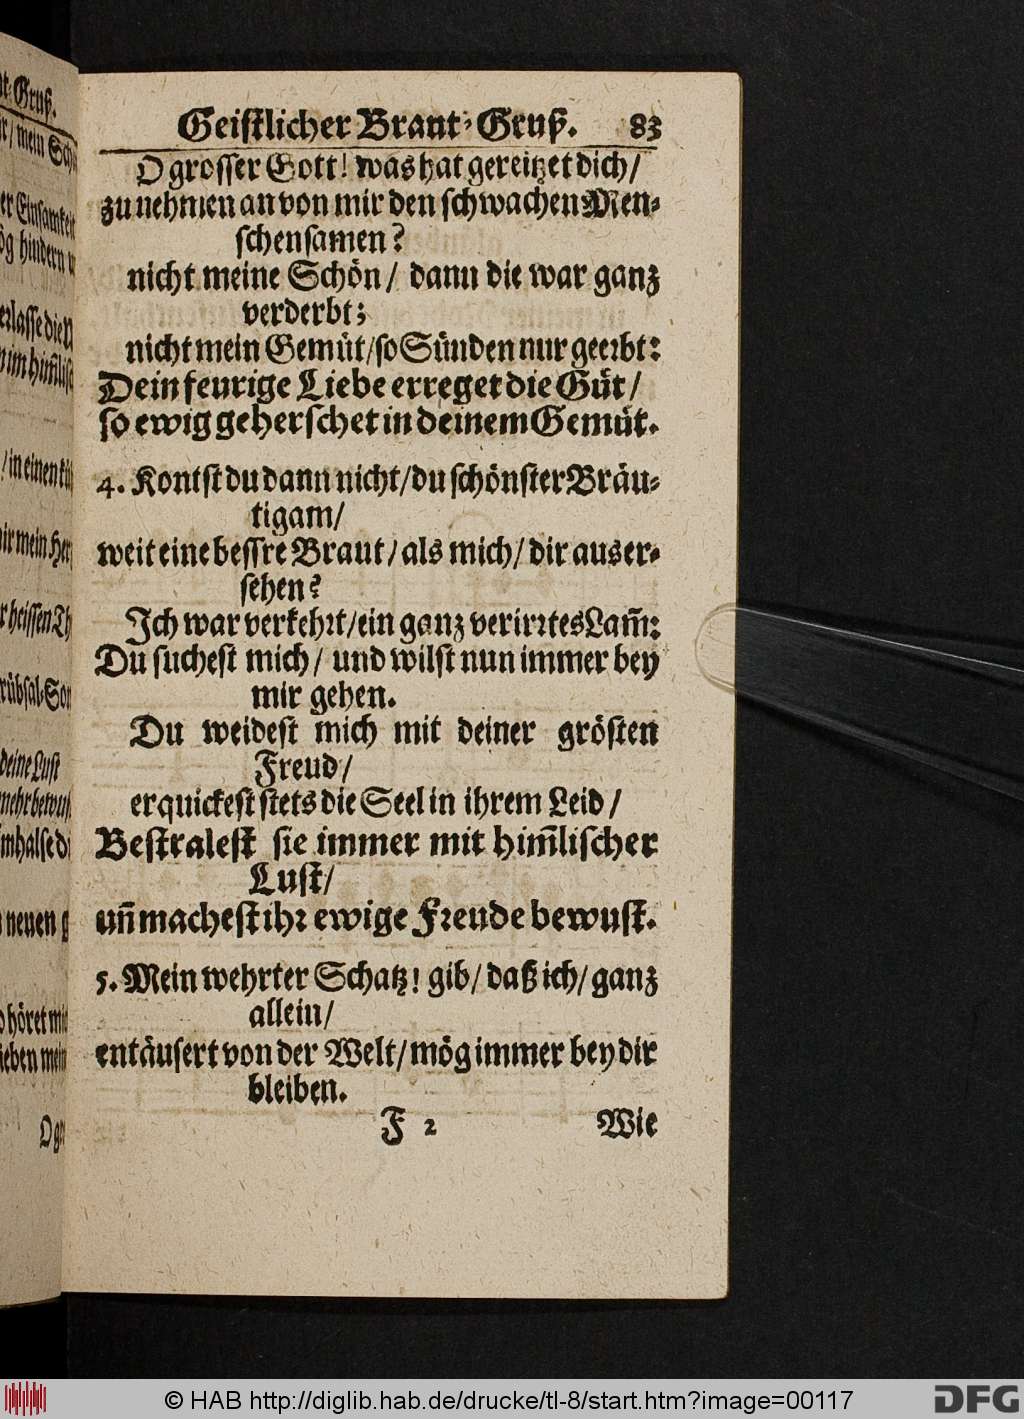 Geistlicher Braut-Gruß. 83
O grosser Gott! was hat gereitzet dich/
zu nehmen an von mir den schwachen Men-
schensamen?
nicht meine Schön/ dann die war ganz
verderbt;
nicht mein Gemüt/ so Sünden nur geerbt:
Dein feurige Liebe erreget die Güt/
so ewig geherschet in deinem Gemüt.
4. Kontst du dann nicht/ du schönster Bräu-
tigam/
weit eine bessre Braut/ als mich/ dir auser-
sehen?
Ich war verkehrt/ ein ganz verirrtes Lam̃:
Du suchest mich/ und wilst nun immer bey
mir gehen.
Du weidest mich mit deiner grösten
Freud/
erquickest stets die Seel in ihrem Leid/
Bestralest sie immer mit him̃lischer
Lust/
uñ machest ihr ewige Freude bewust.
5. Mein wehrter Schatz! gib/ daß ich/ ganz
allein/
entäusert von der Welt/ mög immer bey dir
bleiben.
F 2 Wie
© HAB http://diglib.hab.de/drucke/tl-8/start.htm?image=00117
DFG